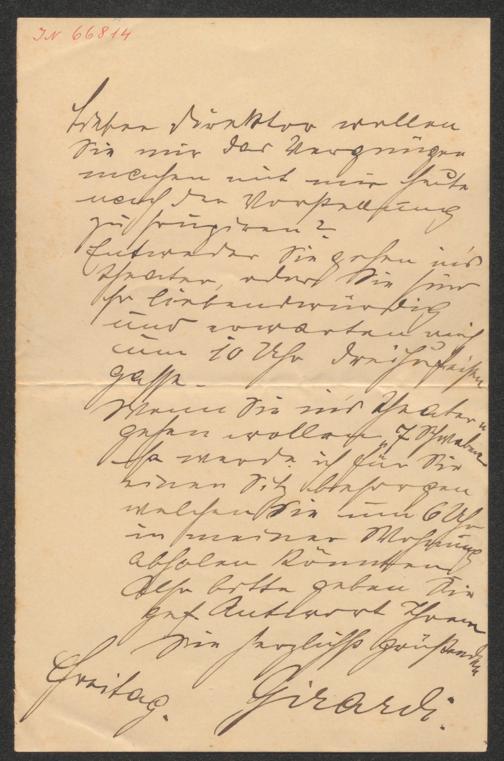 IN 66814
Lieber Direktor wollen
Sie mir das Vergnügen
machen mit mir heute
nach der Vorstellung
zu soupiren?
Entweder Sie gehen in's
Theater, oder Sie sind
so liebenswürdig
und erwarten mich
um 10 Uhr Dreihufeisen
gasse.
Wenn Sie in's Theater
gehen wollen „7 Schwaben"
so werde ich für Sie
einen Sitz besorgen
welchen Sie um 6 Uhr
in meiner Wohnung
abholen könnten.
Also bitte geben Sie
gef. Antwort Ihrem
Sie herzlichst grüßenden
Freitag. Girardi.